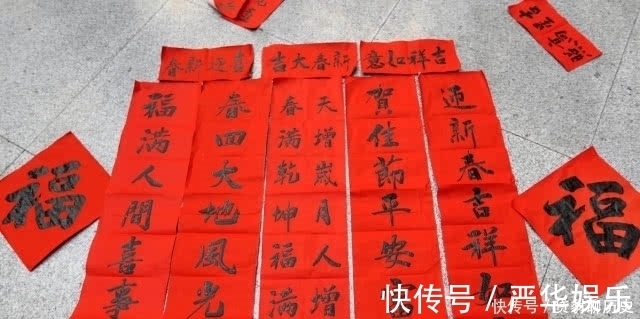 喜迎新春
新春大吉
吉祥如意
迎新春吉祥如
賀佳節平安
天增歲月人增
春滿乾坤福滿
春回大地風光
福滿人間喜事
福
福
快传号 / 晋华娱乐
快传号/